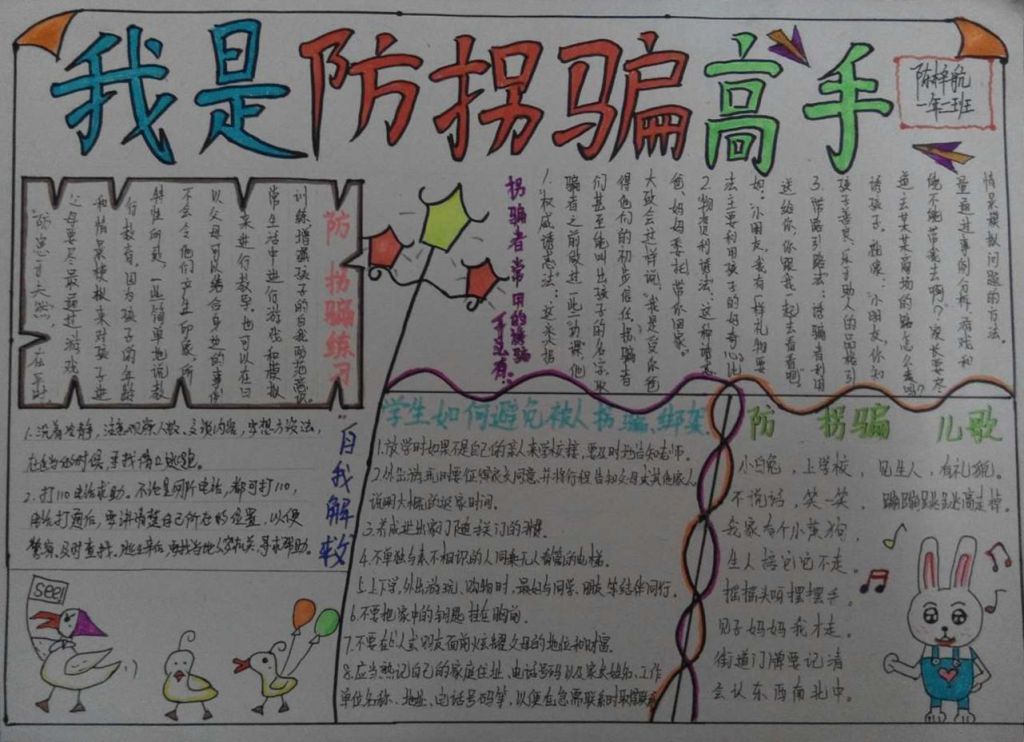 我是防拐骗高手
陈梓航
一年一班
防拐骗练习
“防患于未然”，在平时
父母要尽最通过游戏
和情景模拟来对孩子进
行教育。因为孩子的年龄
特性所致，一些简单地说教
不会令他们产生印象。所
以父母可以结合身边的事情
来进行教导。也可以在日
常生活中进行游戏和模拟
训练，增强孩子的自我防范意识。
拐骗者常用的诱骗
手段有：
1.权威诱惑法：这类人拐
骗者之前做过一些功课，他
们甚至能叫出孩子的名字，取
得他们的初步信任。拐骗者
大致会这样说，“我是受你爸
爸、妈妈委托，带你回家。”
2.物资利诱法：这种诱惑
法主要利用孩子的好奇心。比
如：“小朋友，我有一样礼物要
送给你，你跟我一起去看看吧。”
3.带路引路法：诱骗者利用
孩子善良、乐于助人的品格引
诱孩子。能像：“小朋友，你知
道去某某商场的路怎么走吗？
能不能带我去啊？”家长要尽
量通过事例分析、游戏和
情景模拟问题的方法。
自我解救
1.沉着冷静，注意观察人数、交谈内容，多想方设法，
在适当的时候，寻找借口逃跑。
2.打110电话求助。不论是何所电话，都可打110，
电话打通后，要讲清楚自己所在的位置，以便
警察及时查找。逃出来后，要找当地公安机关，寻求帮助。
see!
学生如何避免被人拐骗、绑架
1.放学时如果不是自己的亲人来学校接，要及时地告知老师。
2.外出游玩时要征得家长同意，并将行程告知父母或其他家人，
说明大概的返家时间。
3.养成进出家门随手关门的习惯。
4.不单独与素不相识的人同乘无人看管的电梯。
5.上下学，外出游玩、购物时，最好与同学、朋友等结伴同行。
6.不要把家中的钥匙挂在胸前。
7.不要在人或朋友面前炫耀父母的地位和财富。
8.应当熟记自己的家庭住址、电话号码以及家长姓名、工作
单位名称、地址、电话号码等，以便在急需联系时取得联系
防拐骗儿歌
小白兔，上学校，见生人，有礼貌。
不说话，笑一笑，蹦蹦跳跳高走掉。
我家有个小黄狗，
生人招它它不走。
摇摇头呀摆摆手，
见了妈妈我才走。
街道门牌要记清
会认东西南北中。